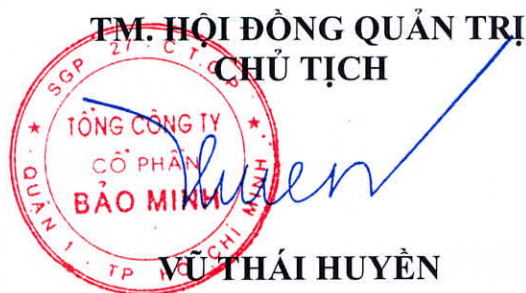 TM. HỘI ĐỒNG QUẢN TRỊ
CHỦ TỊCH
SGP 27 C.T.C.P
TỔNG CÔNG TY
CỔ PHẦN
BẢO MINH
QUẬN 1 - TP HỒ CHÍ MINH
Huyen
VŨ THÁI HUYỀN